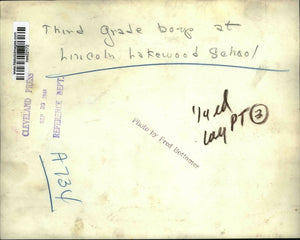 Third Grade boys at
Lincoln Lakewood School
CLEVELAND PRESS
SEP 20 1948
REFERENCE DEPT.
A734
Photo by Fred Bottomer
PT 3